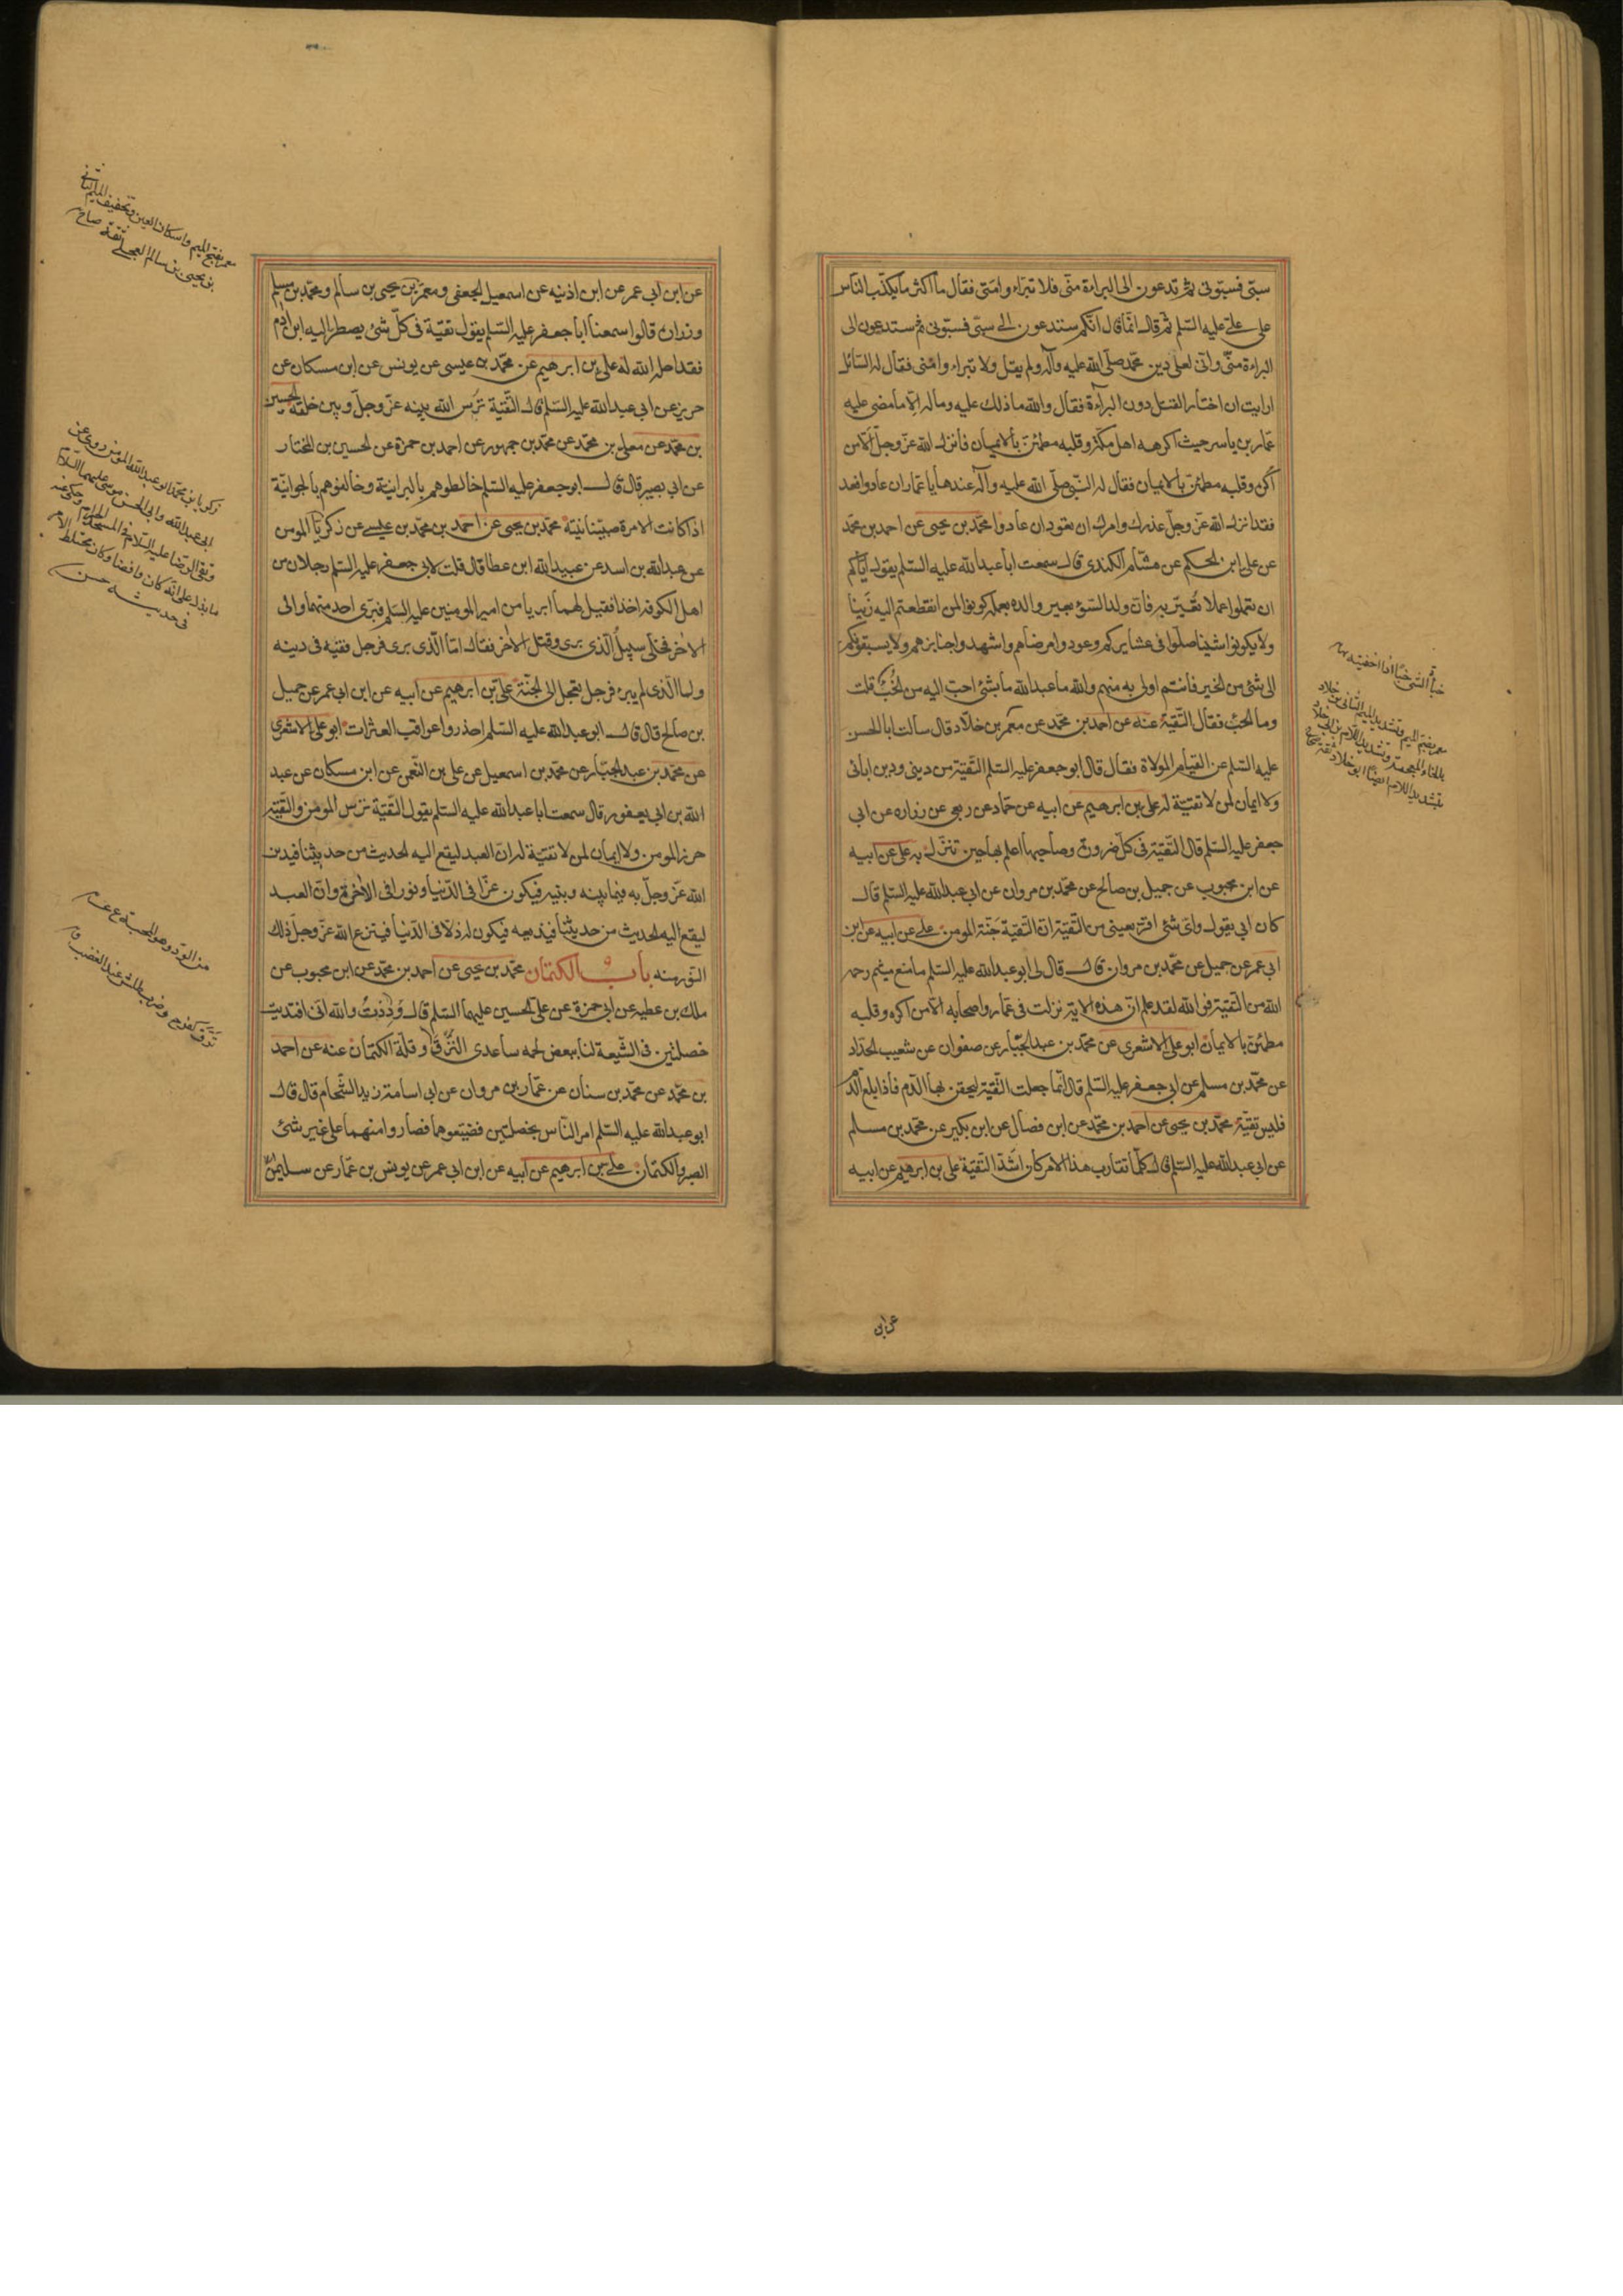 سبّی فسبّونی ثمّ تدعون الی البراءة منّی فلا تبرّاء وامنّی فقال ما اکثر ما یکذّب النّاس
علی علیّ علیه السّلم ثمّ قال انّما قال انّکم ستدعون الی سبّی فسبّونی ثم ستدعون الی
البراءة منّی وانّی لعلی دین محمّد صلّی الله علیه وآله ولم یقل ولا تبراء وامنّی فقال له السّائل
ارایت ان اختار القتل دون البراءة فقال والله ما ذلك علیه وماله الّا ما مضی علیه
عمّار بن یاسر حیث اکرهه اهل مکّة وقلبه مطمئنّ بالایمان فانزل الله عزّ وجلّ الّا من
اکره وقلبه مطمئنّ بالایمان فقال له النّبی صلّی الله علیه وآله عندها یا عمّار ان عادوا فعد
فقد انزل الله عزّ وجلّ عذرك وامرك ان تعود ان عادوا محمّد بن یحیی عن احمد بن محمّد
عن علی ابن الحکم عن هشام الکندی قال سمعت ابا عبد الله علیه السّلم یقول ایّاکم
ان تعملوا عملا نُعیّر به فانّ ولد السّوء یعیر والده بعمله کونوا لمن انقطعتم الیه زَینا
ولا یکونوا شینا صلّوا فی عشایرکم وعودوا مرضاهم واشهدوا جنایزهم ولا یسبقونکم
الی شئ من الخیر فانتم اولی به منهم والله ما عبد الله ما بشئ احبّ الیه من الخبء قلت
وما الخبء فقال التّقیّة عنه عن احمد بن محمّد عن معمر بن خلّاد قال سالت ابا الحسن
علیه السّلم عن القیام للولاة فقال قال ابو جعفر علیه السّلم التّقیّة من دینی ودین ابائی
ولا ایمان لمن لا تقیّة له علی بن ابرهیم عن ابیه عن حمّاد عن ربعی عن زراره عن ابی
جعفر علیه السّلم قال التّقیّة فی کلّ ضرورة وصاحبها اعلم بها حین تنزل به علی عن ابیه
عن ابن محبوب عن جمیل بن صالح عن محمّد بن مروان عن ابی عبد الله علیه السّلم قال
کان ابی یقول وایّ شئ اقرّ بعینی من التّقیّة انّ التّقیّة جنّة المومن علی عن ابیه عن ابن
ابی عمر عن جمیل عن محمّد بن مروان قال قال لی ابو عبد الله علیه السّلم ما منع میثم رحمه
الله من التّقیّة فو الله لقد علم انّ هذه الایة نزلت فی عمّار واصحابه الّا من اکره وقلبه
مطمئنّ بالایمان ابو علی الاشعری عن محمّد بن عبد الجبّار عن صفوان عن شعیب الحدّاد
عن محمّد بن مسلم عن ابی جعفر علیه السّلم قال انّما جعلت التّقیّة لیحقن بها الدّم فاذا بلغ الدّم
فلیس تقیّة محمّد بن یحیی عن احمد بن محمّد عن ابن فضال عن ابن بکیر عن محمّد بن مسلم
عن ابی عبد الله علیه السّلم قال کلّما تقارب هذا الامر کان اشدّ التّقیّة علی بن ابرهیم عن ابیه
خبأ الشی خبئًا اذا اخفیته
معمر بضمّ المیم وتشدید المیم الثانی بن خلّاد
بالخاء المعجمة وتشدید اللام بن ابی خلاد
بتشدید اللام ایضًا ابو خلاد ثقة
عن ابن
عن ابن ابی عمر عن ابن اذنیه عن اسمعیل الجعفی ومعمر بن یحیی بن سالم ومحمّد بن مسلم
وزراره قالوا سمعنا ابا جعفر علیه السّلم یقول تقیّة فی کلّ شئ یصطرّ الیه ابن ادم
فقد احله الله له علی بن ابرهیم عن محمّد بن عیسی عن یونس عن ابن مسکان عن
حریز عن ابی عبد الله علیه السّلم قال التّقیّة ترس الله بینه عزّ وجلّ وبین خلقه الحسین
بن محمّد عن معلی بن محمّد عن محمّد بن جمهور عن احمد بن حمزة عن الحسین بن المختار
عن ابی بصیر قال قال ابو جعفر علیه السّلم خالطوهم بالبرانیّة وخالفوهم بالجوانیّة
اذا کانت الامرة صبیانیّة محمّد بن یحیی عن احمد بن محمّد بن عیسی عن زکریّا المومن
عن عبد الله بن اسد عن عبید الله ابن عطا قال قلت لابی جعفر علیه السّلم رجلان من
اهل الکوفه اخذا فقیل لهما ابریا من امیر المومنین علیه السّلم فبری احد منهما وابی
الاخر فخلّی سبیل الّذی بری وقتل الاخر فقال امّا الّذی بری فرجل فقیه فی دینه
وامّا الّذی لم یبر فرجل تعجل الی الجنّة علی بن ابرهیم عن ابیه عن ابن ابی عمر عن جمیل
بن صالح قال قال ابو عبد الله علیه السّلم احذروا عواقب العثرات ابو علی الاشعری
عن محمّد بن عبد الجبّار عن محمّد بن اسمعیل عن علی بن النّعمن عن ابن مسکان عن عبد
الله بن ابی یعفور قال سمعت ابا عبد الله علیه السّلم یقول التّقیّة ترس المومن والتّقیّة
حرز المومن ولا ایمان لمن لا تقیّة له انّ العبد لیقع الیه الحدیث من حدیثنا فیدین
الله عزّ وجلّ به فیما بینه وبینه فیکون عزّا فی الدّنیا ونورا فی الاخرة وانّ العبد
لیقع الیه الحدیث من حدیثنا فیذیعه فیکون له ذلا فی الدّنیا فینزع الله عزّ وجلّ ذلك
النّور منه باب الکتمان محمّد بن یحیی عن احمد بن محمّد عن ابن محبوب عن
ملك بن عطیه عن ابی حمزة عن علی الحسین علیهما السّلم قال وَدِدْتُ والله انّی افتدیت
خصلتین فی الشّیعة لنا ببعض لحمه ساعدی النَّزَق وقلّة الکتمان عنه عن احمد
بن محمّد عن محمّد بن سنان عن عمّار بن مروان عن ابی اسامة زید الشّحّام قال قال
ابو عبد الله علیه السّلم امر النّاس بخصلتین فضیّعوهما فصاروا منهما علی غیر شئ
الصبر والکتمان علی بن ابرهیم عن ابیه عن ابن ابی عمر عن یونس بن عمّار عن سلیمن
معمر بفتح المیم واسکان العین وتخفیف المیم الثانی
بن یحیی بن سالم العجلی ثقة
زکریا بن محمّد ابو عبد الله المومن روی عن
ابی عبد الله وابی الحسن موسی علیهما السّلام
ولقی الرضا علیه السّلام فی المسجد الحرام وحکی عنه
ما یدل علی انّه کان واقفا وکان مختلط الامر
فی حدیثه
من الودّ وهو المحبّة
نزق کفرح وضرب طاش عند الغضب